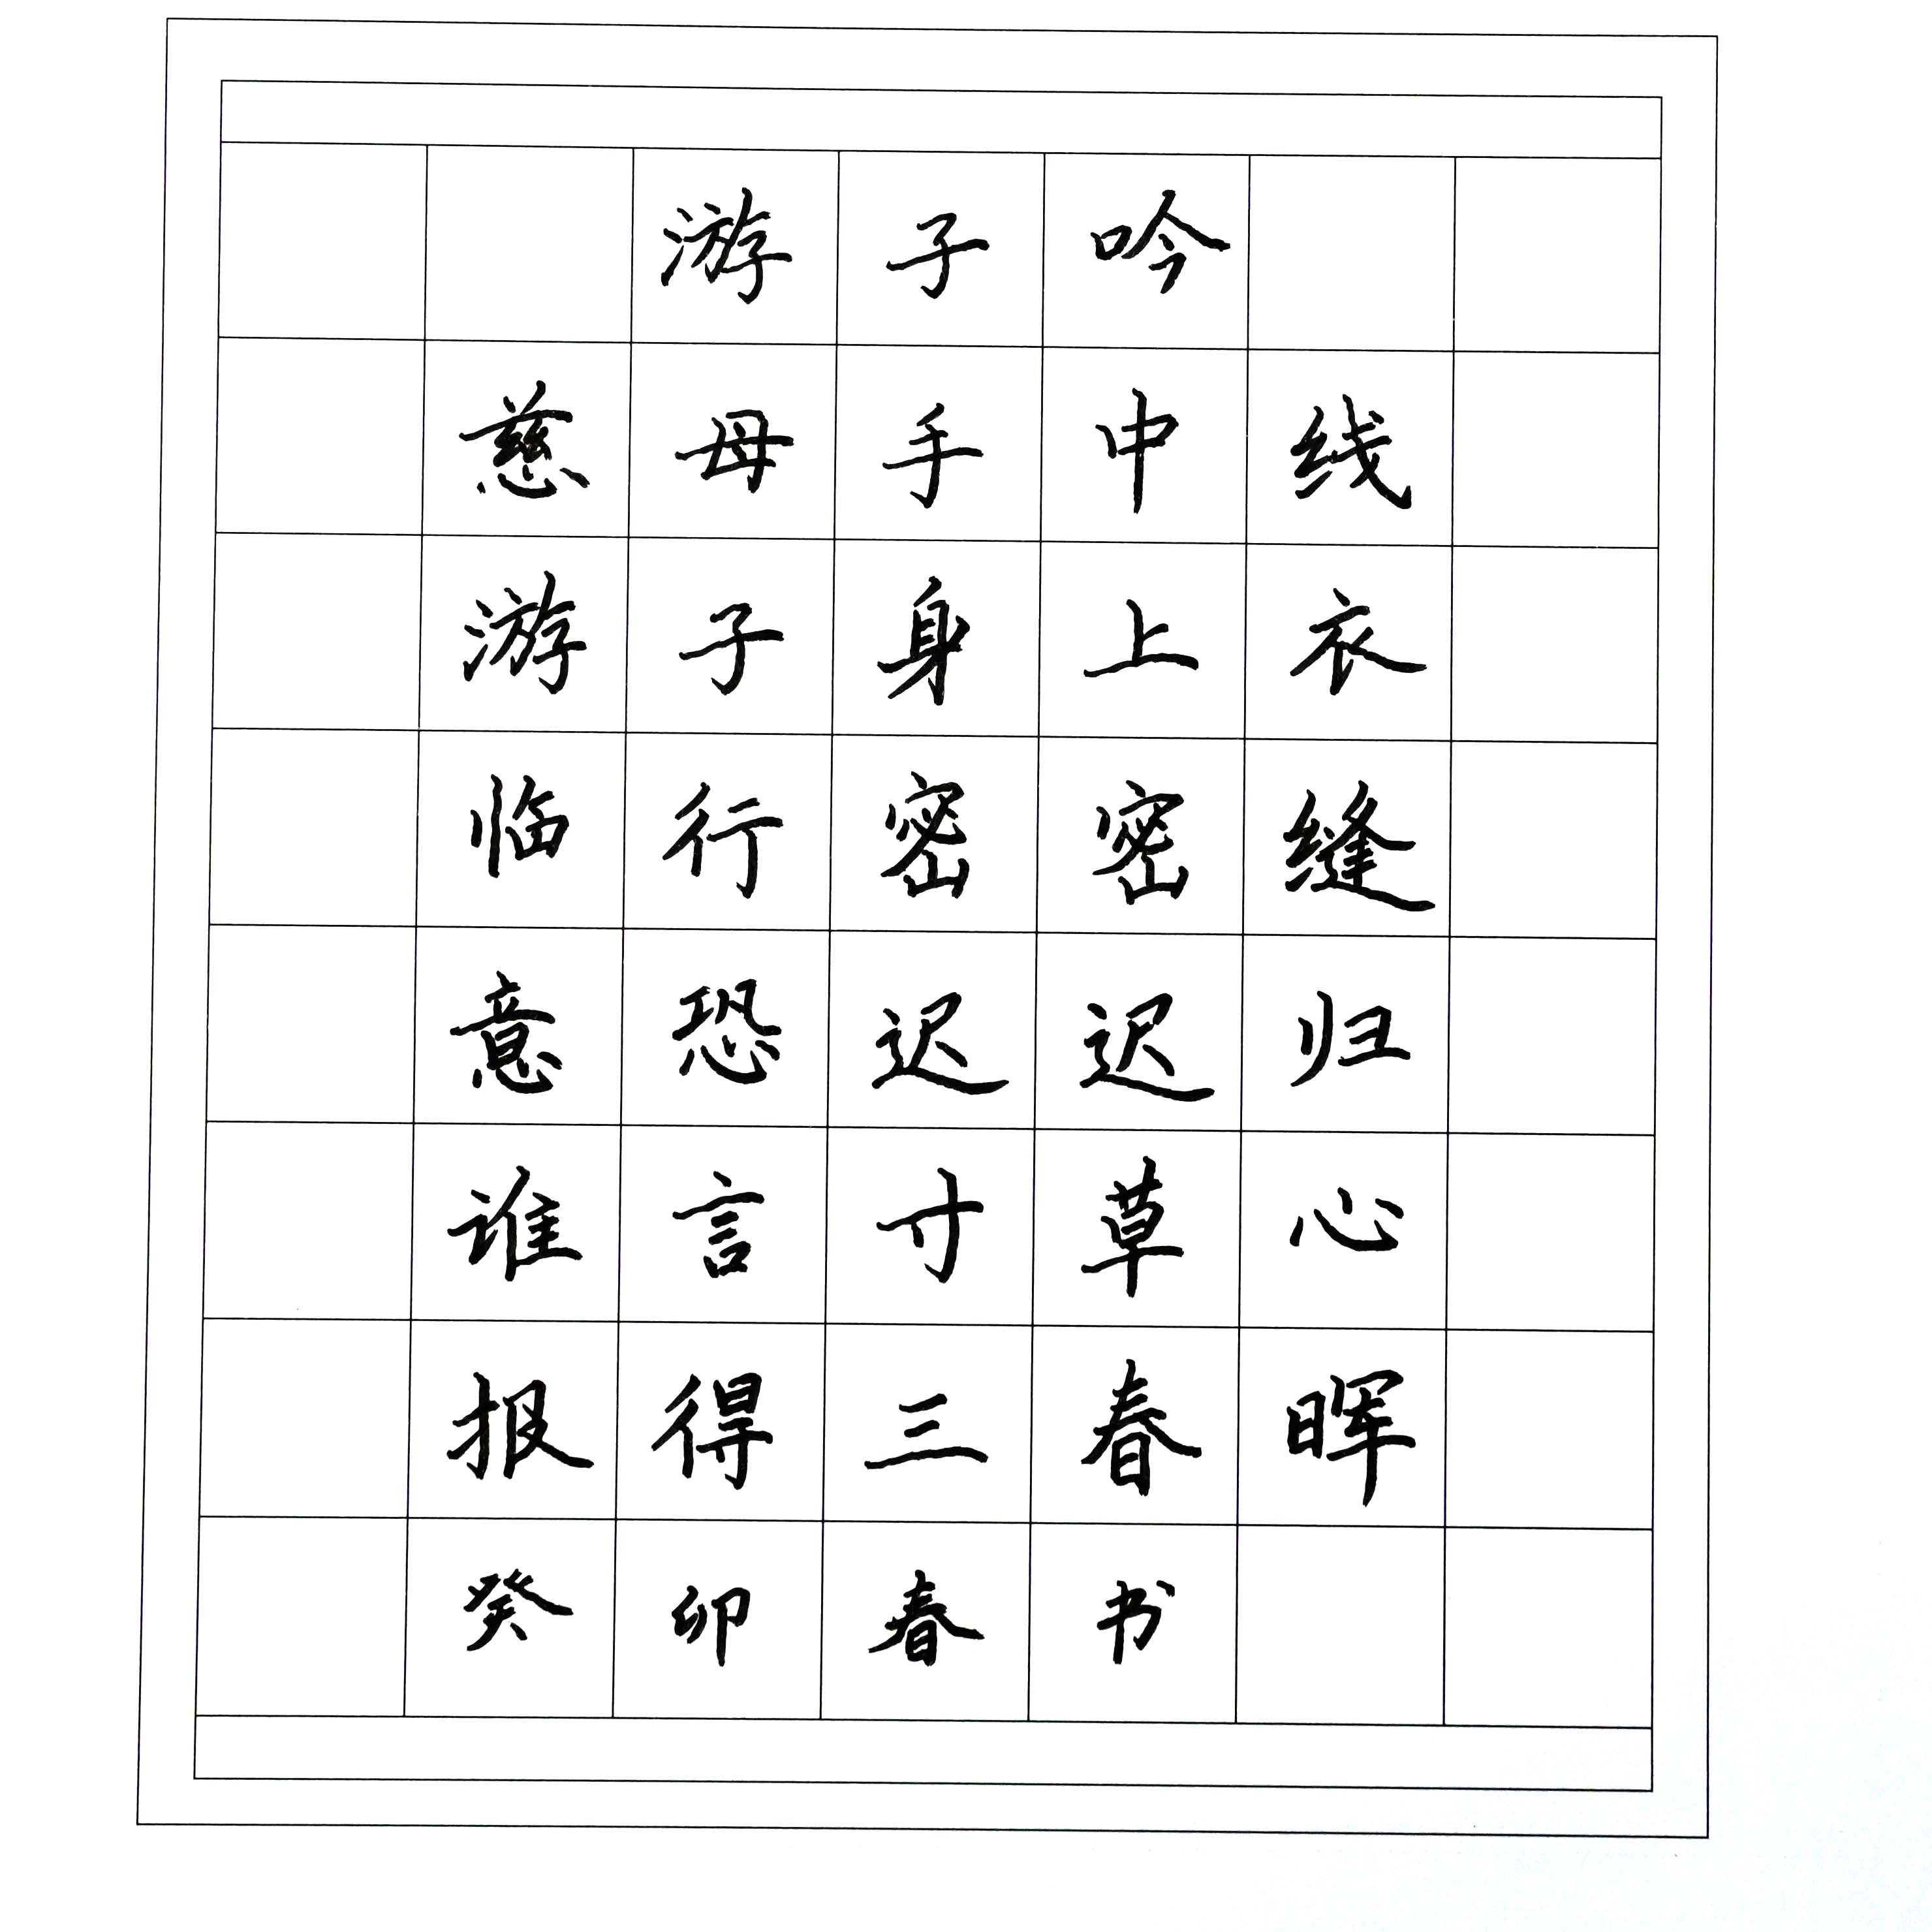 游子吟
慈母手中线
游子身上衣
临行密密缝
意恐迟迟归
谁言寸草心
报得三春晖
癸卯春书